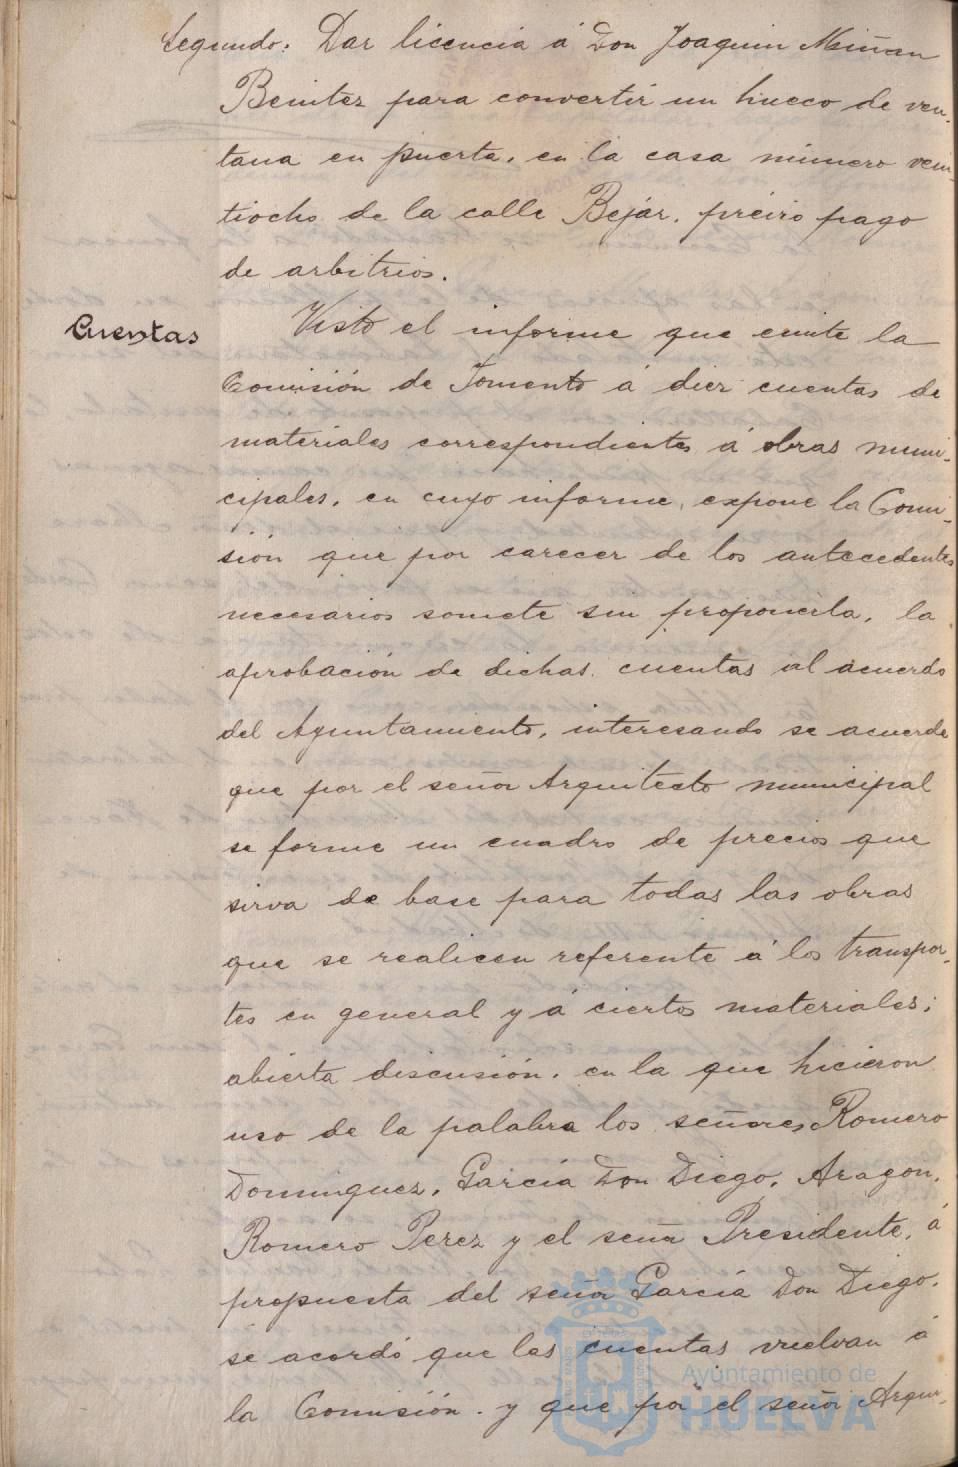 Segundo. Dar licencia á Don Joaquin Miñan
Benitez para convertir un hueco de ven-
tana en puerta, en la casa número vein-
tiocho de la calle Bejar, préivo pago
de arbitrios.
Cuentas
Visto el informe que emite la
Comisión de Fomento á diez cuentas de
materiales correspondientes á obras muni-
cipales, en cuyo informe, expone la Comi-
sión que por carecer de los antecedentes
necesarios somete sin proponerla, la
aprobación de dichas cuentas al acuerdo
del Ayuntamiento, interesando se acuerde
que por el señor Arquitecto municipal
se forme un cuadro de precios que
sirva de base para todas las obras
que se realicen referente á los transpor-
tes en general y á ciertos materiales;
abierta discusión, en la que hicieron
uso de la palabra los señores Romero
Dominguez, García Don Diego, Aragon,
Romero Perez y el señor Presidente, á
propuesta del señor García Don Diego,
se acordó que las cuentas vuelvan á
la Comisión y que por el señor Arqui-
Ayuntamiento de
HUELVA